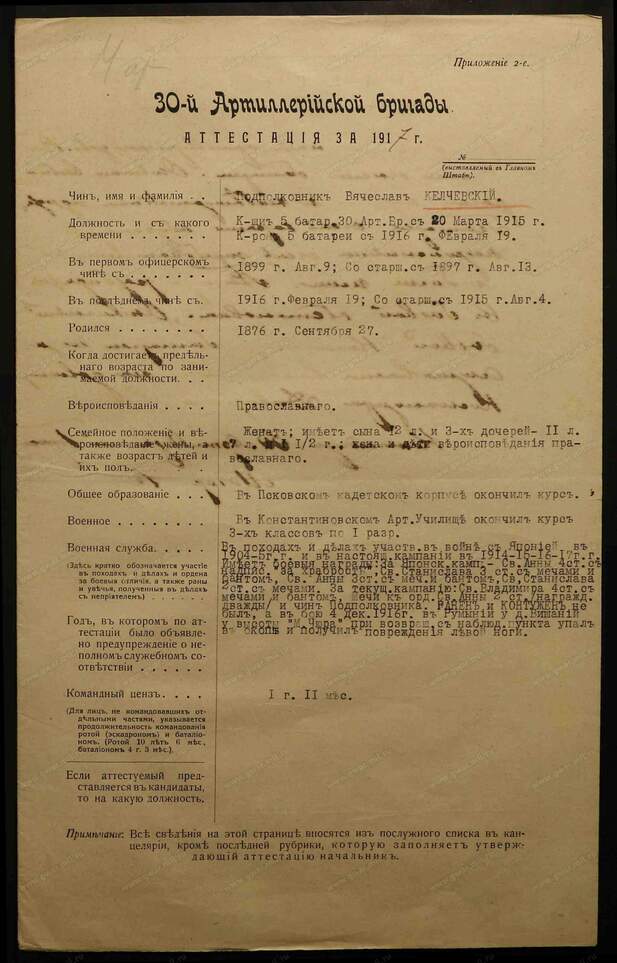 Приложеніе 2-е.
30-й Артиллерійской бригады.
АТТЕСТАЦІЯ ЗА 1917 г.
№
(выставляемый въ Главномъ Штабѣ).
Чинъ, имя и фамилія . . Подполковникъ Вячеславъ КЕЛЧЕВСКІЙ.
Должность и съ какого К-щій 5 батар.30 Арт.Бр.съ 20 Марта 1915 г.
времени . . . . . . . К-ромъ 5 батареи съ 1916 г. Февраля 19.
Въ первомъ офицерскомъ
чинѣ съ . . . . . . . 1899 г. Авг.9; Со старш.съ 1897 г. Авг.13.
Въ послѣднемъ чинѣ съ. 1916 г.Февраля 19; Со старш.съ 1915 г.Авг.4.
Родился . . . . . . . 1876 г. Сентября 27.
Когда достигаетъ предѣль-
наго возраста по зани-
маемой должности. . . .
Вѣроисповѣданія . . . . Православнаго.
Семейное положеніе и вѣ- Женатъ; имѣетъ сына 12 л. и 3-хъ дочерей- II л.
роисповѣданіе жены, а 7 л. 1/2 г.; жена и дѣти вѣроисповѣданія пра-
также возрастъ дѣтей и вославнаго.
ихъ полъ. . . . . . .
Общее образованіе . . . Въ Псковскомъ кадетскомъ корпусѣ окончилъ курсъ.
Военное . . . . . . . Въ Константиновскомъ Арт.Училищѣ окончилъ курсъ
3-хъ классовъ по I разр.
Военная служба. . . . .
(Здѣсь кратко обозначается участіе
въ походахъ и дѣлахъ и ордена
за боевыя отличія, а также раны
и увѣчья, полученныя въ дѣлахъ
съ непріятелемъ) . . . . . .
Въ походахъ и дѣлахъ участв.въ войнѣ съ Японіей въ
1904-5г.г. и въ настоящ.кампаніи въ 1914-15-16-17г.г.
Имѣетъ боевыя награды:за Японск.камп.- Св.Анны 4ст.съ
надпис."За храбрость",Св.Станислава 3 ст.съ мечами и
бантомъ, Св. Анны 3ст.съ меч.и бантомъ,Св.Станислава
2ст.съ мечами. За текущ.кампанію:Св.Владимира 4ст.съ
мечами и бантомъ, мечи къ орд.Св.Анны 2 ст./награжд.
дважды/ и чинъ Подполковника. РАНЕНЪ и КОНТУЖЕНЪ не
былъ, а въ бою 4 Дек.1916г. въ Румыніи у д.Вишани
у высоты "М.Чюра" при возвращ.съ наблюд.пункта упалъ
въ окопъ и получилъ поврежденія лѣвой ноги.
Годъ, въ которомъ по ат-
тестаціи было объявле-
но предупрежденіе о не-
полномъ служебномъ со-
отвѣтствіи . . . . . .
Командный цензъ. . . . I г. II мѣс.
(Для лицъ, не командовавшихъ от-
дѣльными частями, указывается
продолжительность командованія
ротой (эскадрономъ) и баталіо-
номъ. (Ротой 10 лѣтъ 6 мѣс.,
баталіономъ 4 г. 3 мѣс.).
Если аттестуемый пред-
ставляется въ кандидаты,
то на какую должность.
Примѣчаніе: Всѣ свѣдѣнія на этой страницѣ вносятся изъ послужного списка въ кан-
целяріи, кромѣ послѣдней рубрики, которую заполняетъ утверж-
дающій аттестацію начальникъ.